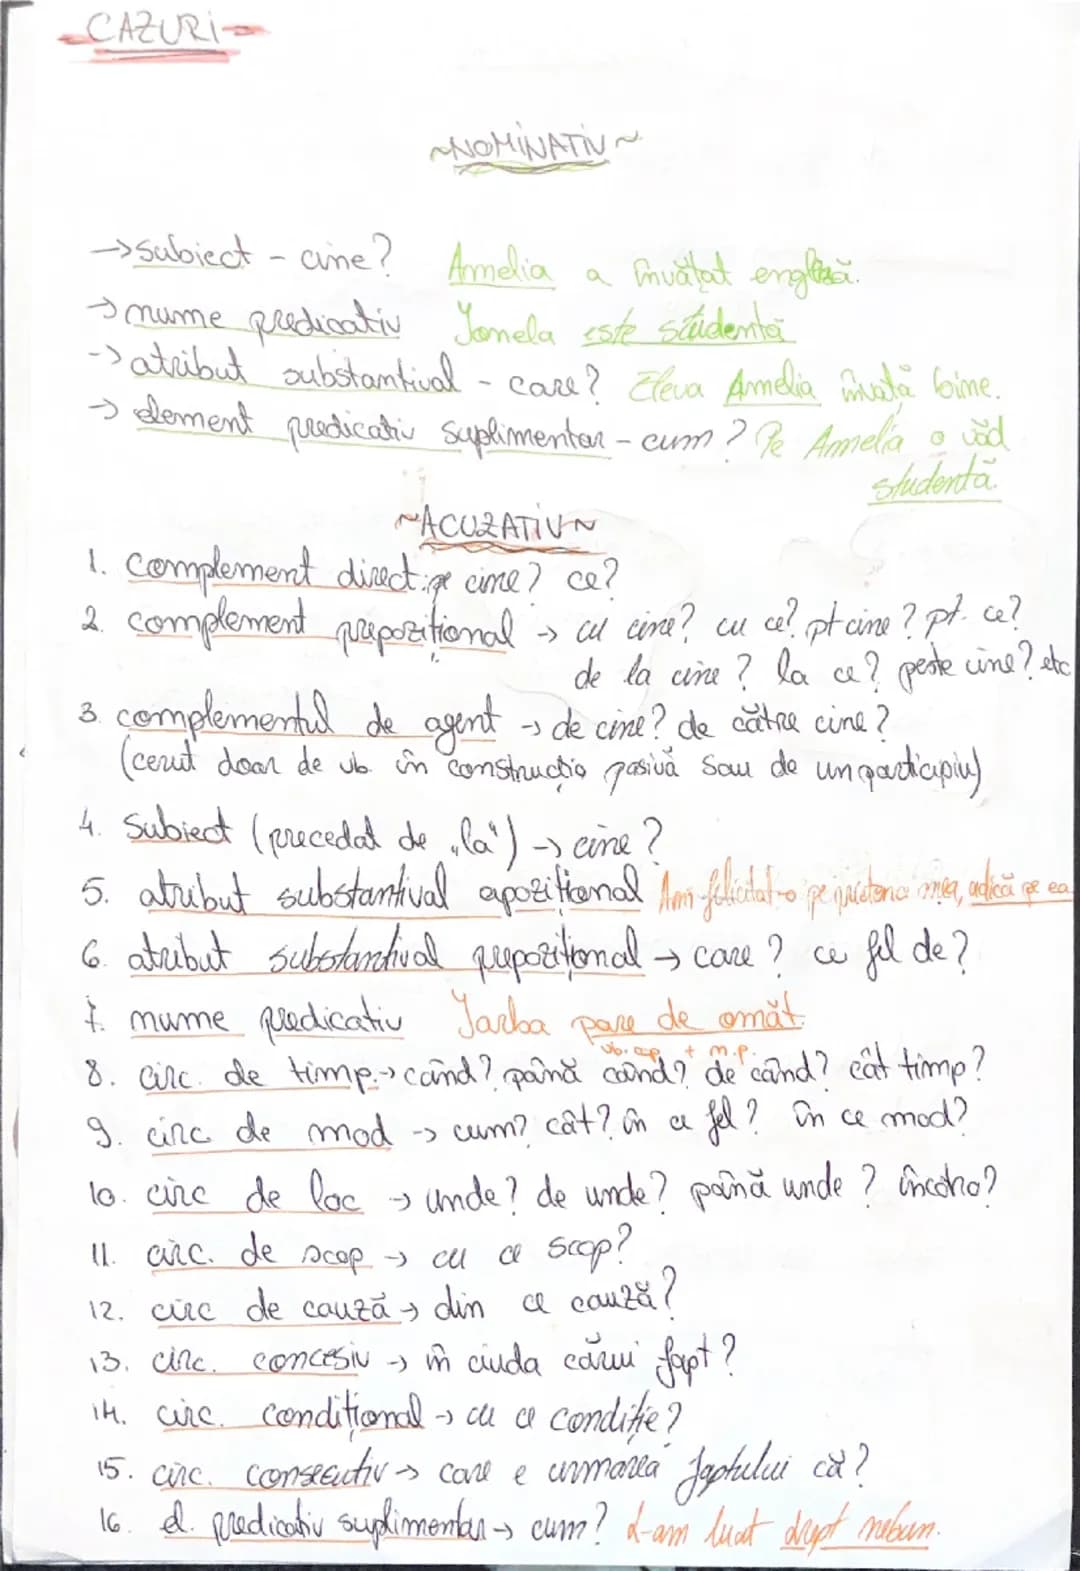 -CAZURI-
~NOMINATIV~
→ subiect - cine? Amelia a învățat engleză.
→ nume predicativ Ionela este studentă
→ atribut substantival - care? Eleva Amelia învață bine.
→ element predicativ suplimentar - cum? Pe Amelia o văd
studentă.
~ACUZATIV~
1. Complement direct: pe cine? ce?
2. complement prepozițional → cu cine? cu ce? pt cine? pt. ce?
de la cine? la ce? peste cine? etc
3. complementul de agent → de cine? de către cine?
(cerut doar de vb. în construcția pasivă sau de un participiu)
4. Subiect (precedat de „la") → cine?
5. atribut substantival apozițional Am felicitat-o pe prietena mea, adică pe ea
6. atribut substantival prepozițional → care? ce fel de?
7. nume predicativ Iarba pare de omăt.
vb. cop + n.p.
8. circ. de timp → când? până când? de când? cât timp?
9. circ de mod → cum? cât? în ce fel? în ce mod?
10. circ de loc → unde? de unde? până unde? încotro?
11. circ. de scop → cu ce scop?
12. circ de cauză → din ce cauză?
13. circ. concesiv → în ciuda cărui fapt?
14. circ. condițional → cu ce condiție?
15. circ. consecutiv → care e urmarea faptului că?
16. el. predicativ suplimentar → cum? L-am luat drept nebun.